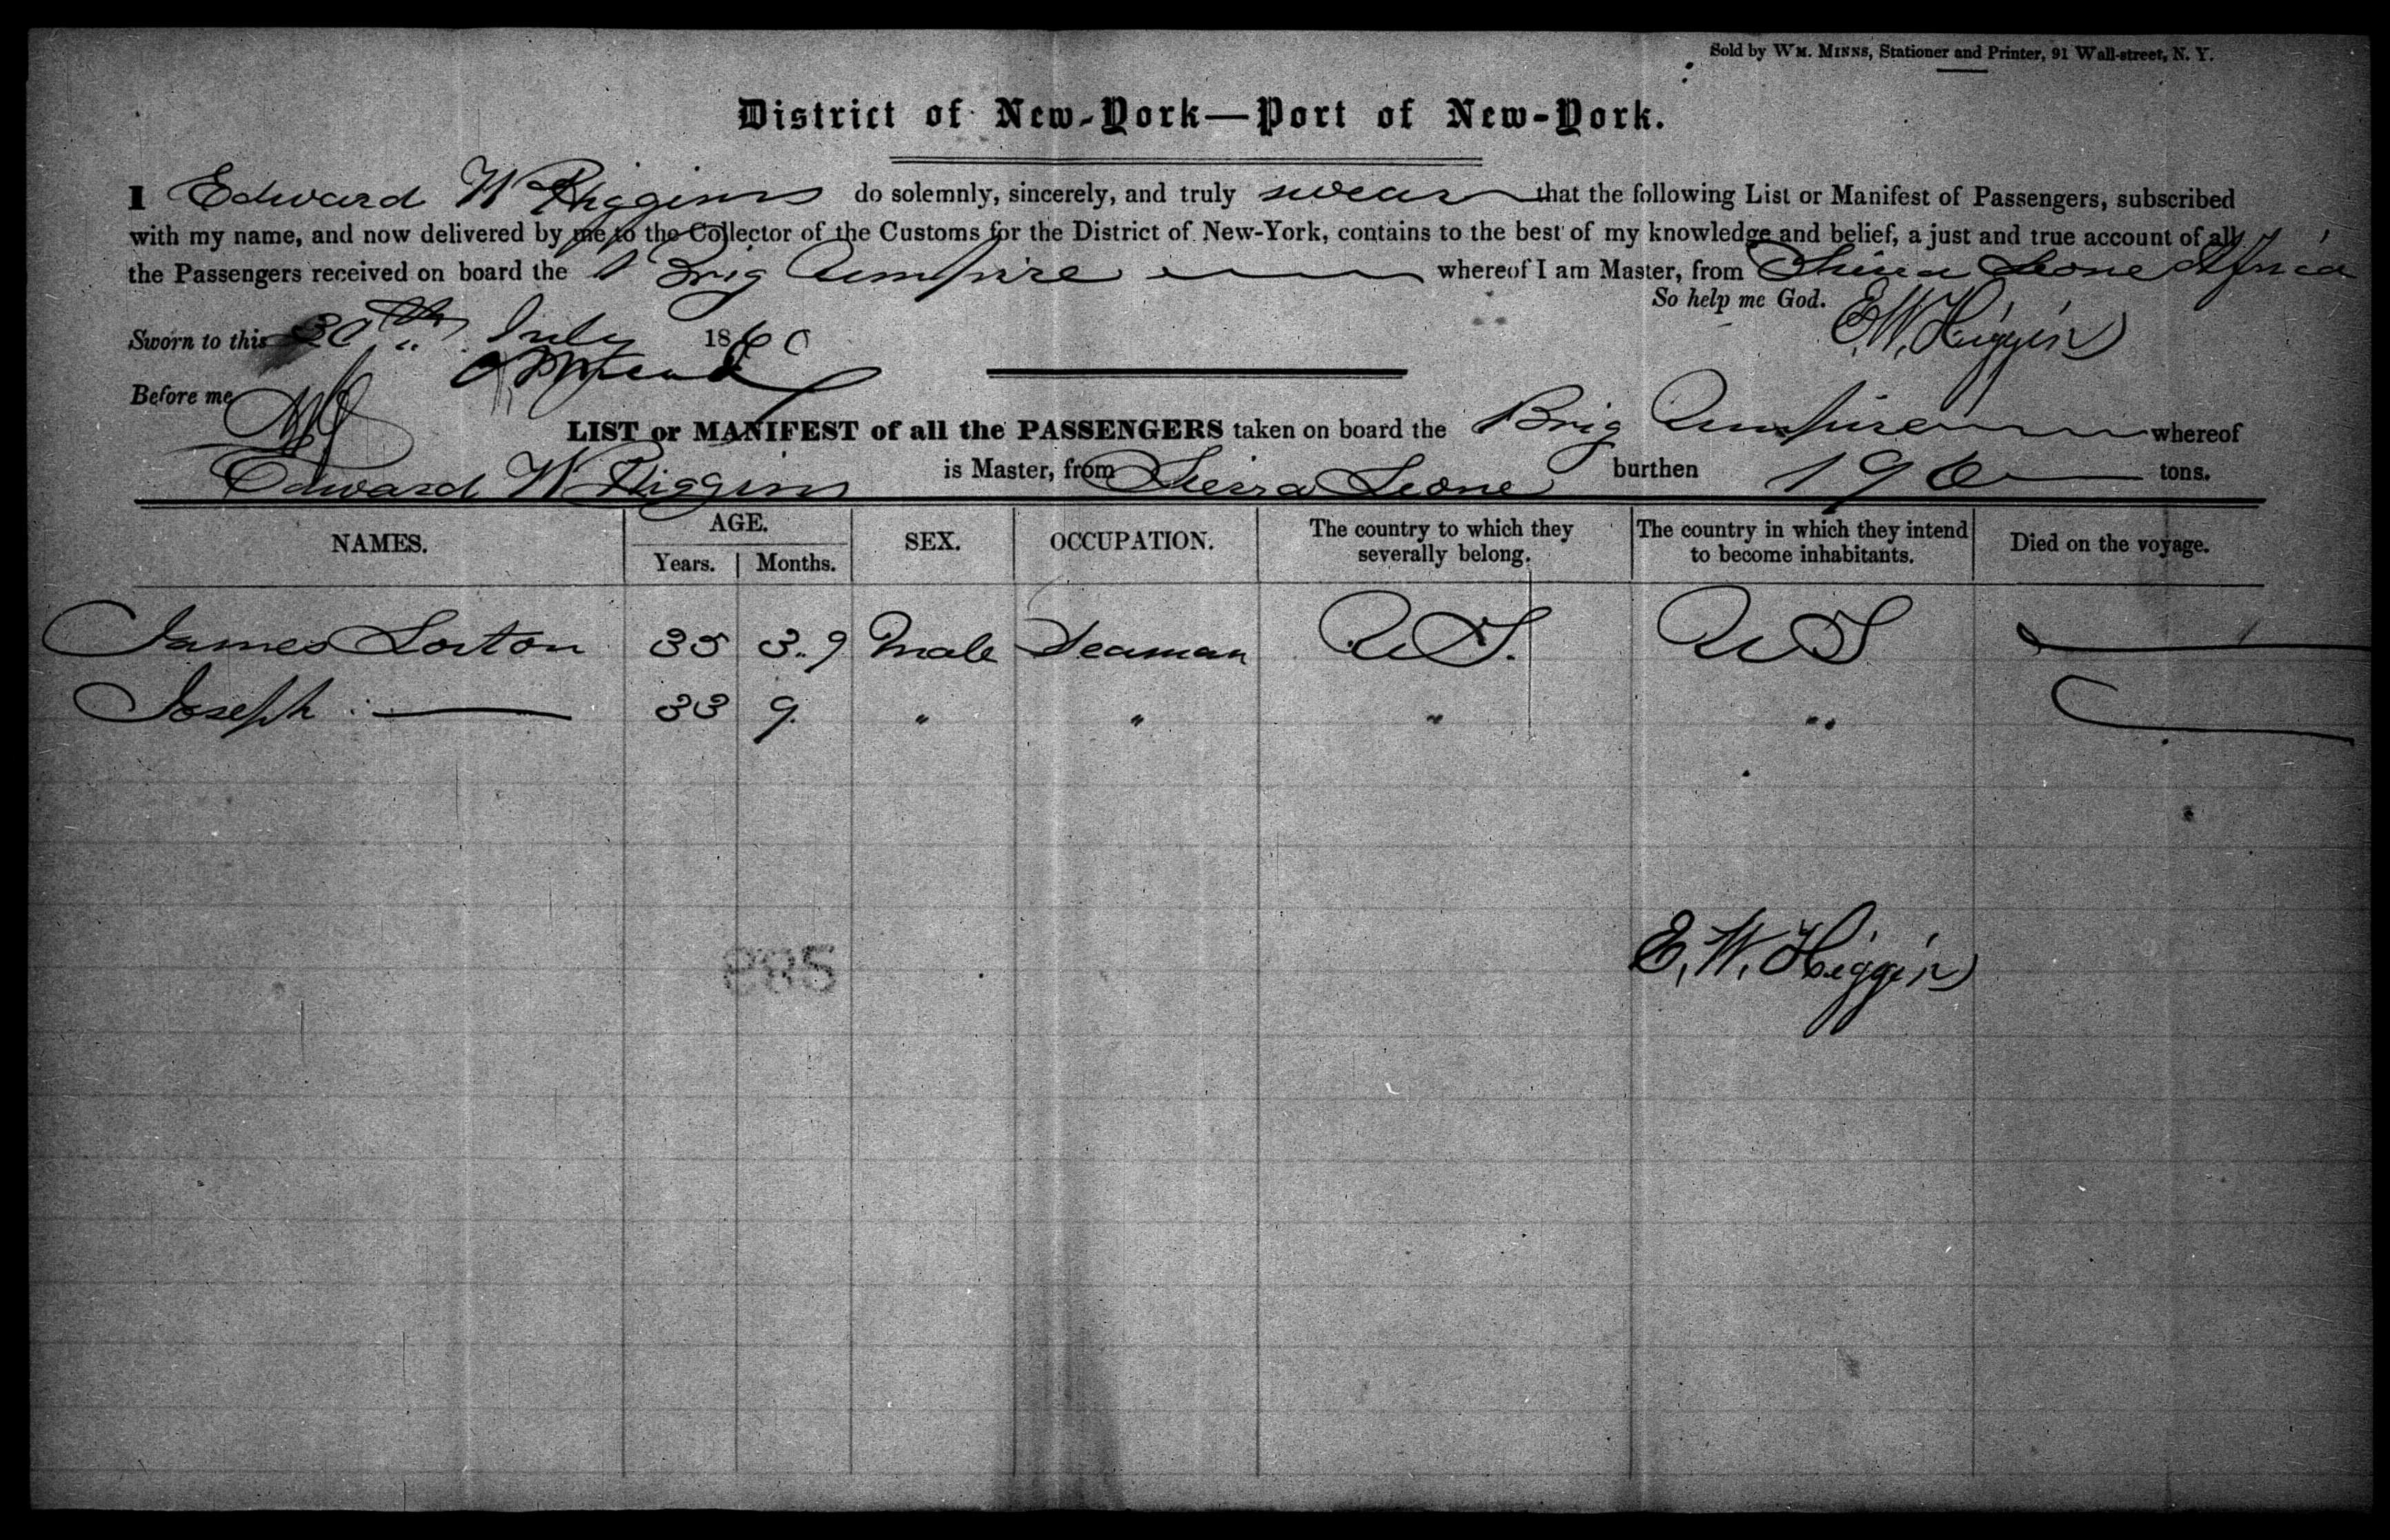 Sold by WM. MINNS, Stationer and Printer, 91 Wall-street, N. Y.
District of New-York—Port of New-York.
I Edward W Higgins do solemnly, sincerely, and truly swear that the following List or Manifest of Passengers, subscribed
with my name, and now delivered by me to the Collector of the Customs for the District of New-York, contains to the best of my knowledge and belief, a just and true account of all
the Passengers received on board the Brig Umpire whereof I am Master, from Sierra Leone Africa
So help me God. E. W. Higgins
Sworn to this 30th July 1860
Before me
LIST or MANIFEST of all the PASSENGERS taken on board the Brig Umpire whereof
Edward W Higgins is Master, from Sierra Leone burthen 196 tons.
NAMES. AGE. Years. Months. SEX. OCCUPATION. The country to which they severally belong. The country in which they intend to become inhabitants. Died on the voyage.
James Lorton 35 3.. 9 Male Seaman U S. U S
Joseph 33 9. " " " "
E. W. Higgins
885